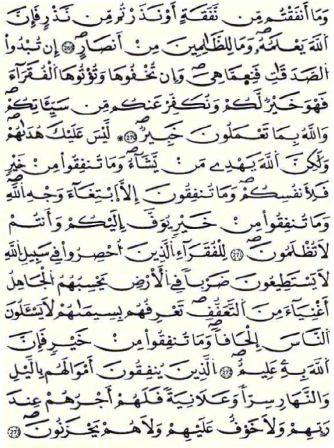 وَمَا أَنفَقْتُم مِّن نَّفَقَةٍ أَوْ نَذَرْتُم مِّن نَّذْرٍ فَإِنَّ
اَللَّهَ يَعْلَمُهُۥ وَمَا لِلظَّٰلِمِينَ مِنْ أَنصَارٍ ٢٦٩ إِن تُبْدُواْ
اُلصَّدَقَٰتِ فَنِعِمَّا هِيَ وَإِن تُخْفُوهَا وَتُؤْتُوهَا اَلْفُقَرَآءَ
فَهُوَ خَيْرٌ لَّكُمْ وَنُكَفِّرْ عَنكُم مِّن سَيِّـَٔاتِكُمْ
وَاللَّهُ بِمَا تَعْمَلُونَ خَبِيرٌ ٢٧٠ * لَّيْسَ عَلَيْكَ هُدَىٰهُمْ
وَلَٰكِنَّ اَللَّهَ يَهْدِے مَنْ يَّشَآءُ وَمَا تُنفِقُواْ مِنْ خَيْرٍ
فَلِأَنفُسِكُمْ وَمَا تُنفِقُونَ إِلَّا اَبْتِغَآءَ وَجْهِ اِللَّهِ
وَمَا تُنفِقُواْ مِنْ خَيْرٍ يُوَفَّ إِلَيْكُمْ وَأَنتُمْ
لَا تُظْلَمُونَ ٢٧١ لِلْفُقَرَآءِ اِلَّذِينَ أُحْصِرُواْ فِے سَبِيلِ اِللَّهِ
لَا يَسْتَطِيعُونَ ضَرْبًا فِے اِلْأَرْضِ يَحْسِبُهُمُ اُلْجَاهِلُ
أَغْنِيَآءَ مِنَ اَلتَّعَفُّفِ تَعْرِفُهُم بِسِيمَٰهُمْ لَا يَسْـَٔلُونَ
اَلنَّاسَ إِلْحَافًا وَمَا تُنفِقُواْ مِنْ خَيْرٍ فَإِنَّ
اَللَّهَ بِهِۦ عَلِيمٌ ٢٧٢ اِلَّذِينَ يُنفِقُونَ أَمْوَٰلَهُم بِالَّيْلِ
وَالنَّهَارِ سِرًّا وَعَلَانِيَةً فَلَهُمْ أَجْرُهُمْ عِندَ
رَبِّهِمْ وَلَا خَوْفٌ عَلَيْهِمْ وَلَا هُمْ يَحْزَنُونَ ٢٧٣